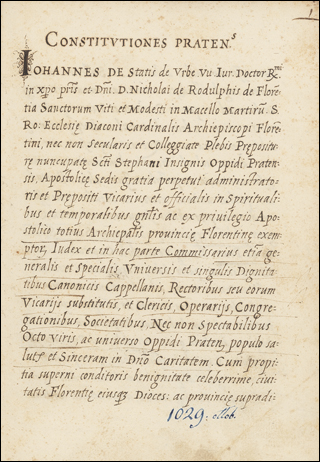 1
CONSTITVTIONES PRATEN.S
IOHANNES DE Statis de Vrbe Vu. Iur. Doctor R.mi
in xp̃o pr̃is et Dñi. D. Nicholai de Rodulphis de Flore
tia Sanctorum Viti et Modesti in Macello Martirũ. S.
Ro: Ecclesię Diaconi Cardinalis Archiepiscopi Flore
tini, nec non Secularis et Collegiatę Plebis Prepositu
rę nuncupatę Scti Stephani Insignis Oppidi Praten
sis, Apostolicę Sedis gratia perpetui administrato
ris et Prepositi Vicarius et officialis in Spirituali
bus et temporalibus gñlis ac ex privilegio Apo
stolico totius Archiepalis provincię Florentinę exe
mptor, Iudex et in hac parte Commissarius etiã ge
neralis et Specialis, Vniversis et singulis Dignita
tibus Canonicis Cappellanis, Rectoribus seu eorum
Vicarijs substitutis, et Clericis, Operarijs, Congre
gationibus, Societatibus, Nec non Spectabilibus
Octo viris, ac universo Oppidi Praten. populo sa
lutẽ et Sinceram in Dño Caritatem. Cum propi
tia superni conditoris benignitate celeberrime, civi
tatis Florentię eiusq; Dioces: ac provincię supradi:
1629: